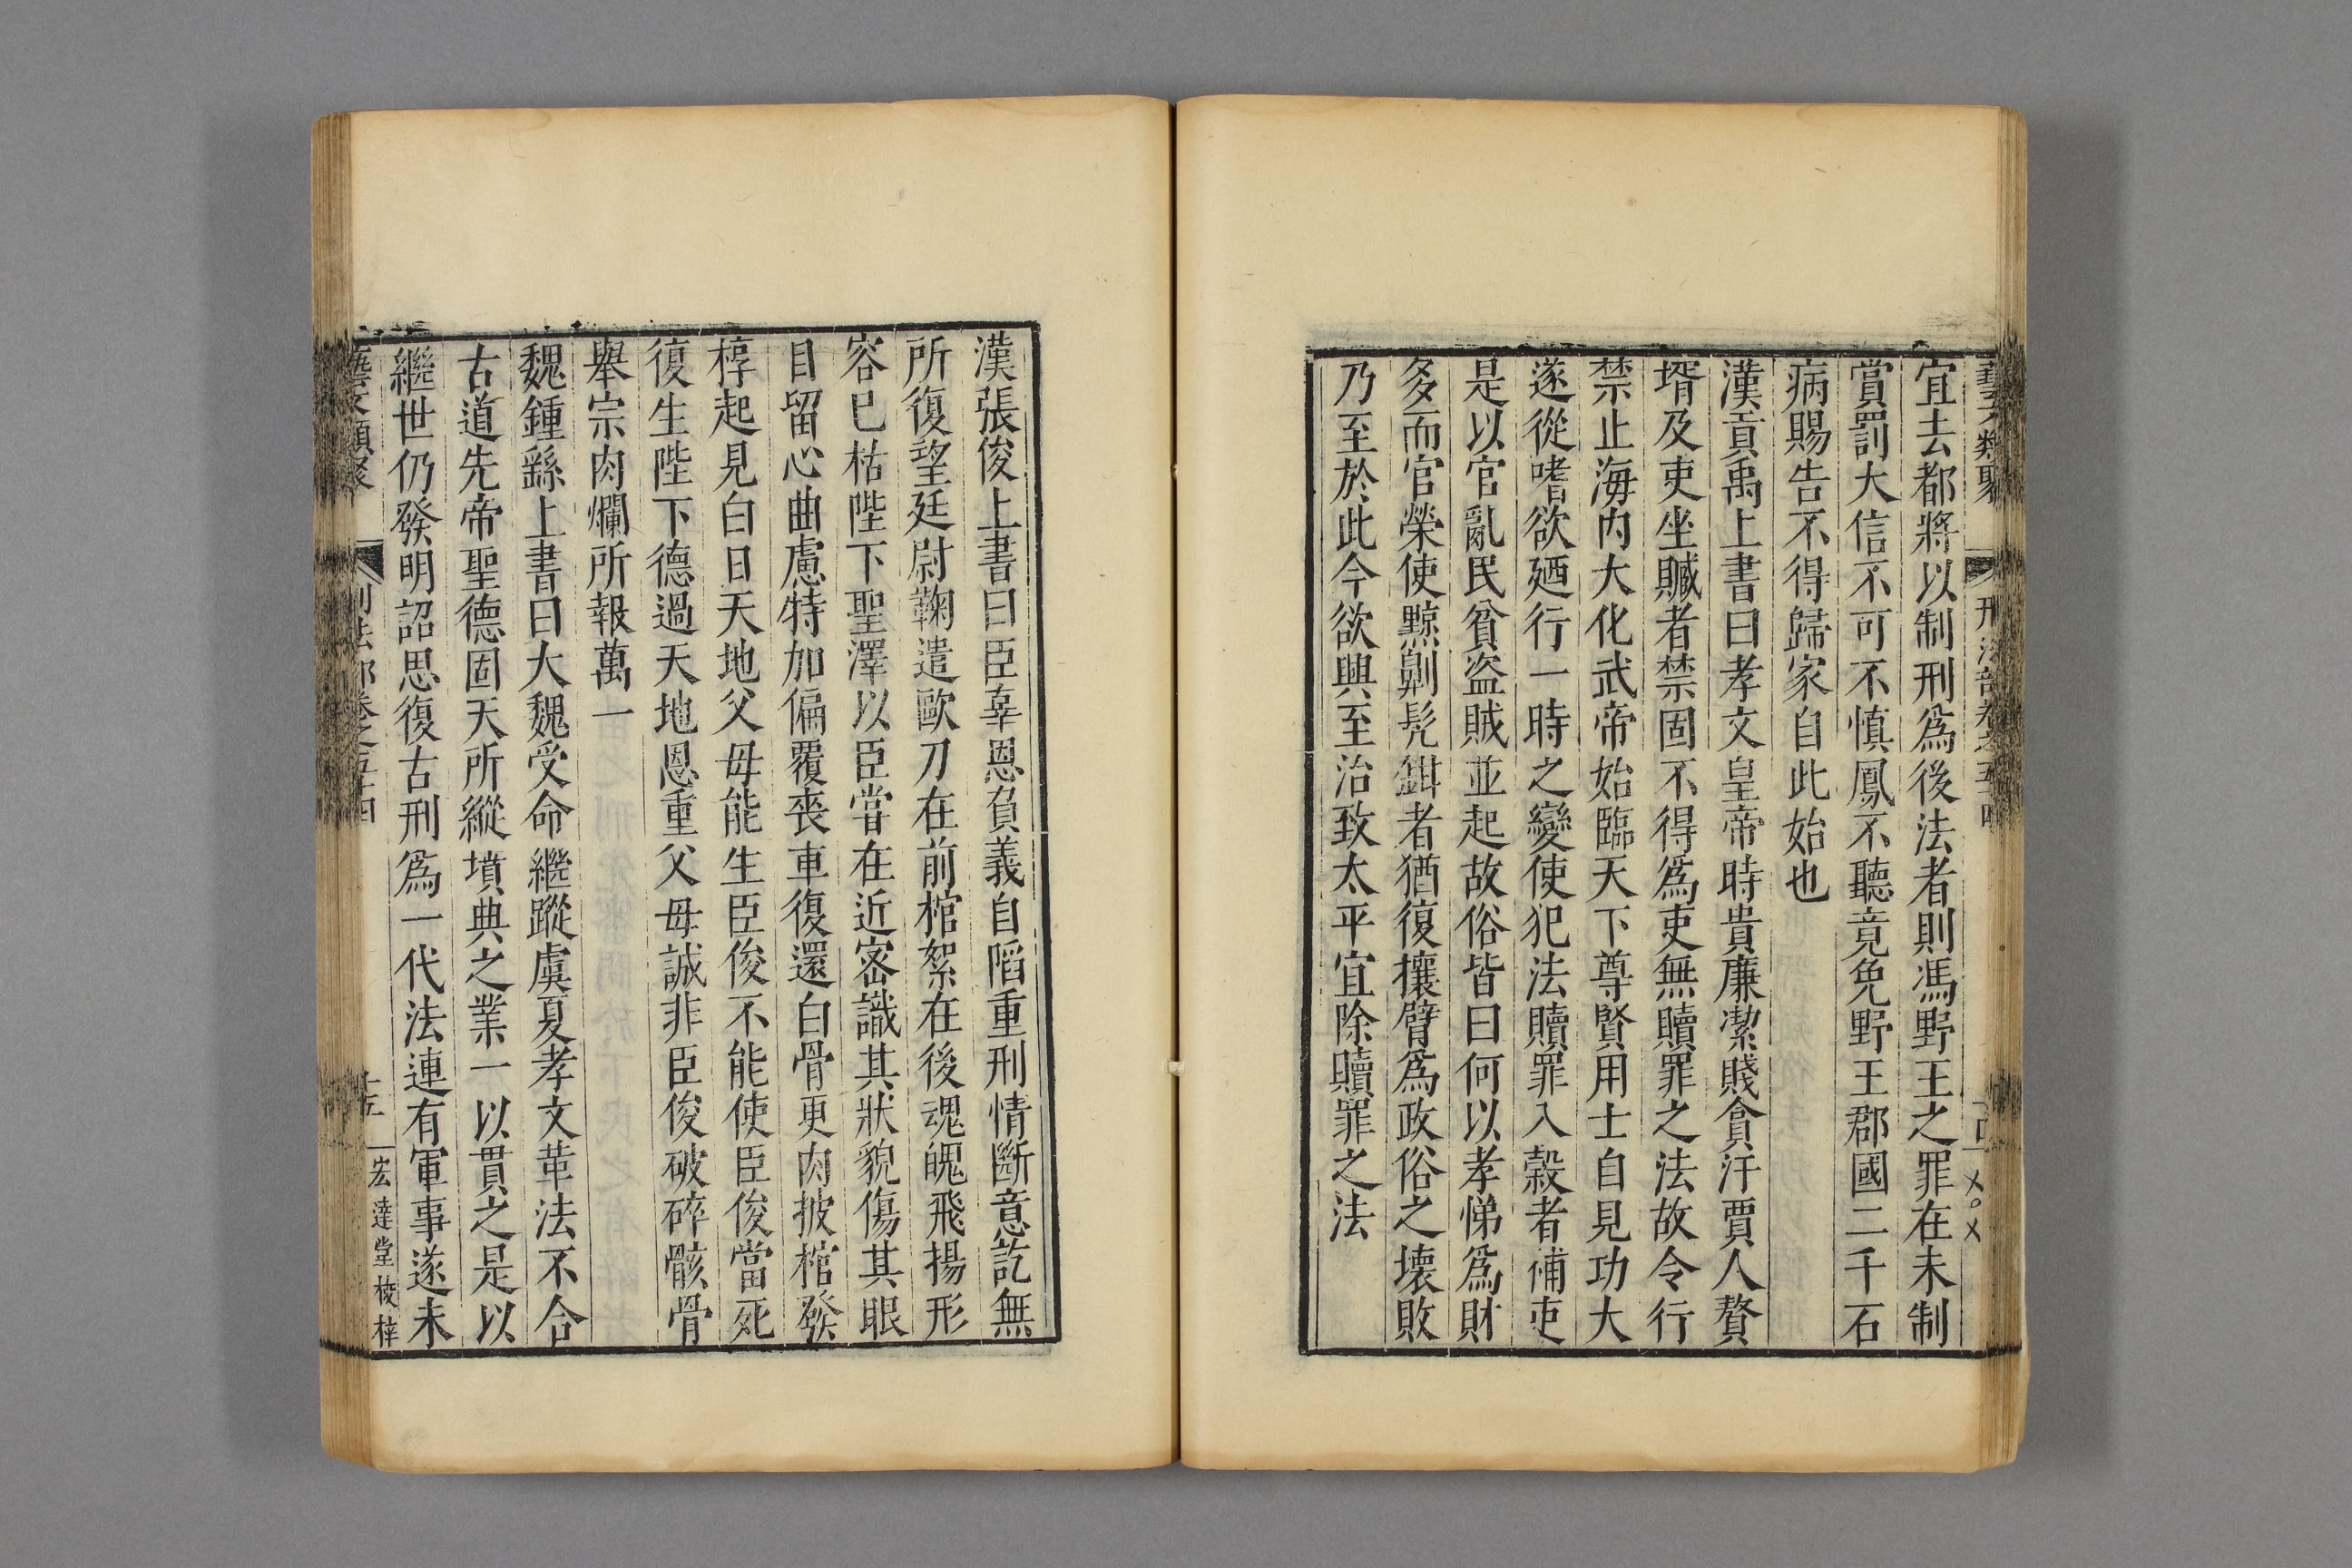 藝文類聚 刑法部卷之五十四
宜去都將以制刑爲後法者則馮野王之罪在未制
賞罰大信不可不慎鳳不聽竟免野王郡國二千石
病賜告不得歸家自此始也
漢貢禹上書曰孝文皇帝時貴廉潔賤貪汙賈人贅
壻及吏坐贓者禁固不得爲吏無贖罪之法故令行
禁止海内大化武帝始臨天下尊賢用士自見功大
遂從嗜欲廼行一時之變使犯法贖罪入穀者補吏
是以官亂民貧盗賊並起故俗皆曰何以孝悌爲財
多而官榮使黥劓髡鉗者猶復攘臂爲政俗之壊敗
乃至於此今欲興至治致太平宜除贖罪之法
漢張俊上書曰臣辜恩負義自䧟重刑情斷意訖無
所復望廷尉鞠遣歐刀在前棺絮在後魂魄飛揚形
容已枯陛下聖澤以臣嘗在近宻識其狀貌傷其眼
目留心曲慮特加偏覆喪車復還白骨更肉披棺發
椁起見白日天地父母能生臣俊不能使臣俊當死
復生陛下德過天地恩重父母誠非臣俊破碎骸骨
舉宗肉爛所報萬一
魏鍾繇上書曰大魏受命繼蹤虞夏孝文革法不合
古道先帝聖德固天所縱墳典之業一以貫之是以
繼世仍發明詔思復古刑爲一代法連有軍事遂未
藝文類聚 刑法部卷之五十四 十五 宏達堂校梓